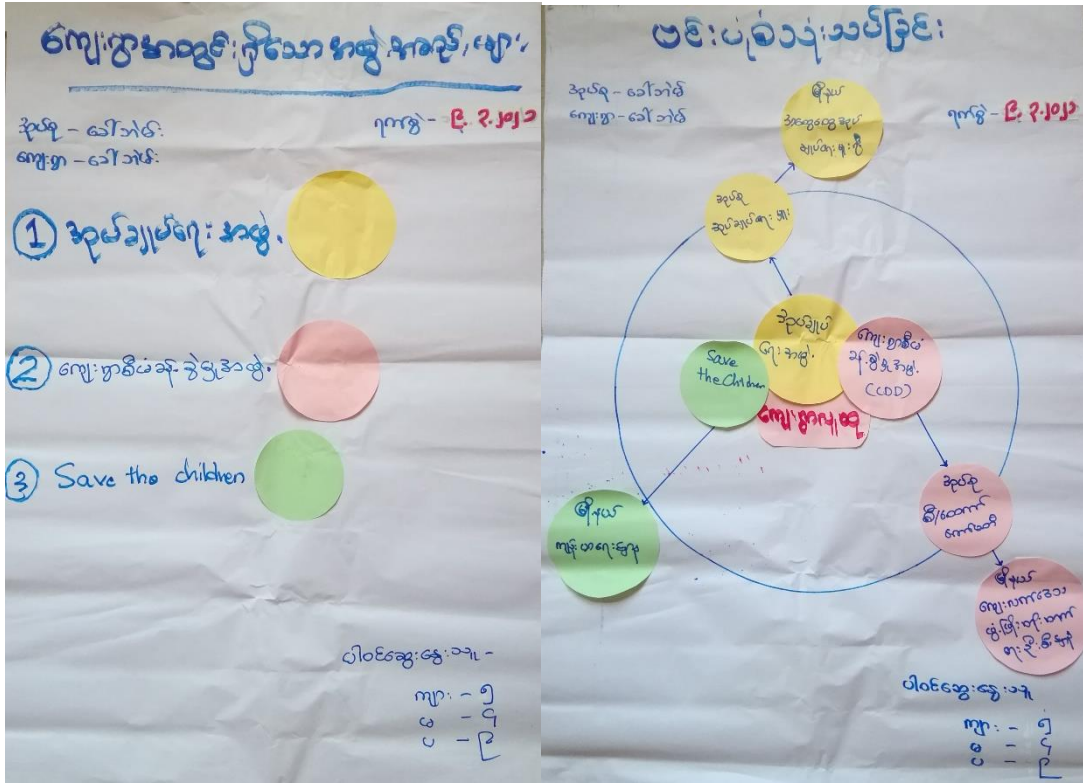 ကျေးရွာအတွင်းရှိသော အဖွဲ့အစည်းများ
အုပ်စု - ခေါ်ဘဲမ်း
ကျေးရွာ - ခေါ်ဘဲမ်း
ရက်စွဲ - ၉.၃.၂၀၂၁
① အုပ်ချုပ်ရေး အဖွဲ့
② ကျေးရွာစီမံခန့်ခွဲမှုအဖွဲ့
③ Save the children
ပါဝင်ဆွေးနွေးသူ -
ကျား - ၅
မ - ၄
ပ - ၉
ဗင်းပုံစံသုံးသပ်ခြင်း
အုပ်စု - ခေါ်ဘဲမ်
ကျေးရွာ - ခေါ်ဘဲမ်
ရက်စွဲ - ၉.၃.၂၀၂၁
မြို့နယ်
အထွေထွေအုပ်
ချုပ်ရေးဦးစီး
အုပ်စု
အုပ်ချုပ်ရေးမှူး
အုပ်ချုပ်
ရေးအဖွဲ့
ကျေးရွာစီမံ
ခန့်ခွဲမှုအဖွဲ့
(CDD)
Save
the Children
ကျေးရွာလူထု
အုပ်စု
စီ/ထောက်
ကော်မတီ
မြို့နယ်
ကျန်းမာရေးဌာန
မြို့နယ်
ကျေးလက်ဒေသ
ဖွံ့ဖြိုးတိုးတက်
ရေးဦးစီးဌာန
ပါဝင်ဆွေးနွေးသူ
ကျား - ၅
မ - ၄
ပ - ၉